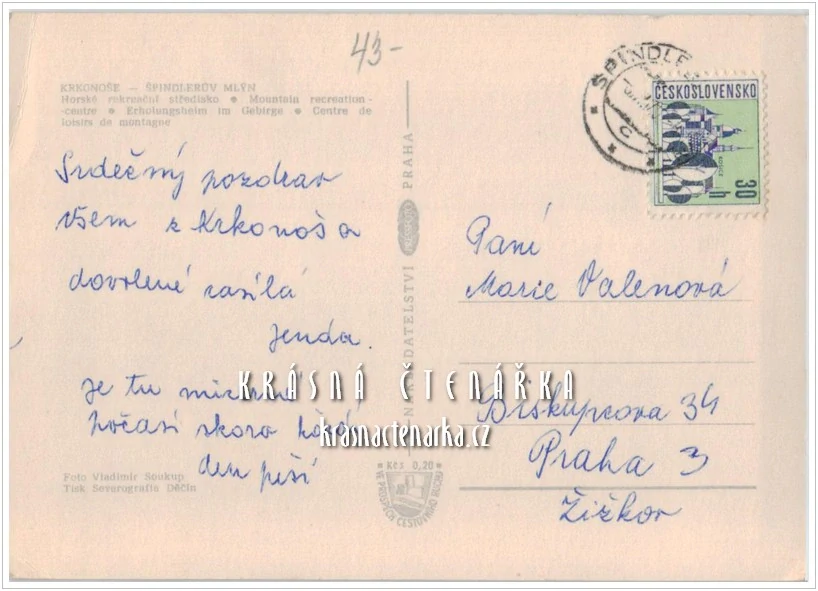 43-
KRKONOŠE — ŠPINDLERŮV MLÝN
Horské rekreační středisko • Mountain recreation-
-centre • Erholungsheim im Gebirge • Centre de
loisirs de montagne
Srdečný pozdrav
všem z Krkonoš a
dovolené zasílá
Jenda.
Je tu
počasí skoro
den prší
Foto Vladimír Soukup
Tisk Severografia Děčín
NAKLADATELSTVÍ PRAHA
Kčs 0,20
VE PROSPĚCH CESTOVNÍHO RUCHU
ŠPINDLE
ČESKOSLOVENSKO
30
h
Paní
Marie Valenová
Biskupcova 34
Praha 3
Žižkov
KRÁSNÁ ČTENÁŘKA
krasnactenarka.cz